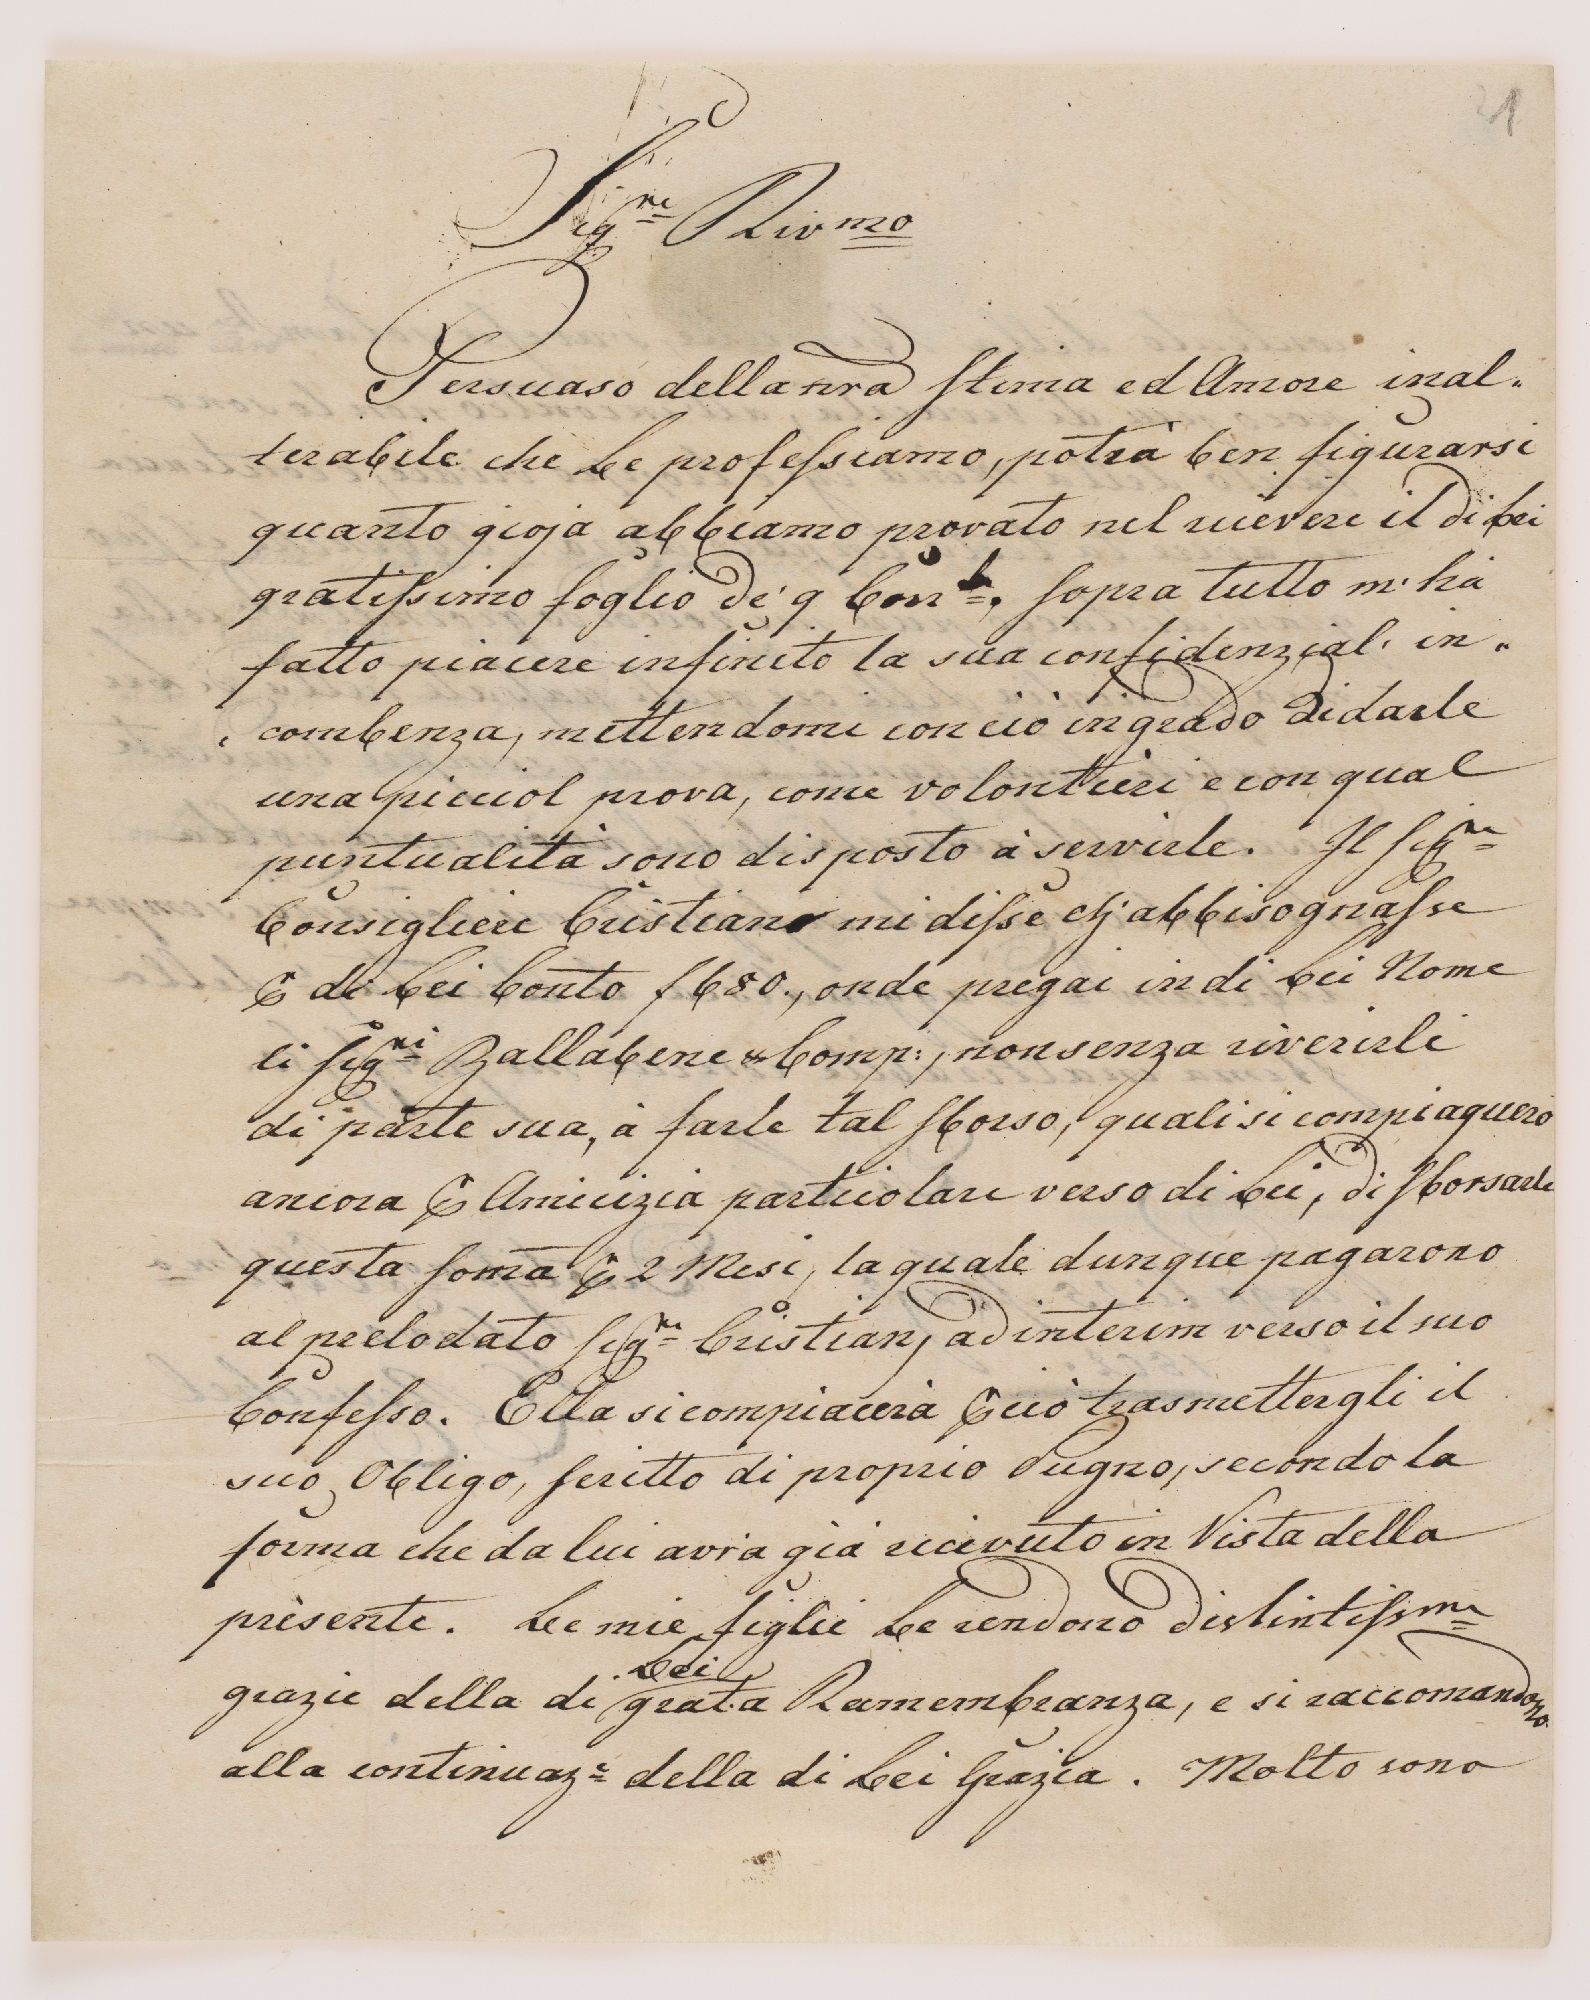 21
Sigre Rivmo
Persuaso della nra stima ed Amore inal-
terabile che Le professiamo, potrà ben figurarsi
quanto gioja abbiamo provato nel ricevere il di Lei
gratissimo foglio de' 9 Corrte, sopra tutto m'hà
fatto piacere infinito la sua confidenzial' in-
combenza, mettendomi con ciò in grado di darle
una picciol prova, come volontieri e con qual
puntualità sono disposto à servirle. Il Sigre
Consigliere Cristian mi disse ch'abbisognasse
per di Lei Conto f 680., onde pregai in di Lei Nome
li Sigri Ballabene & Comp:, non senza riverirli
di parte sua, à farle tal sborso, quali si compiaquero
ancora per Amicizia particolare verso di Lei, di sborsarle
questa soma per 2 Mesi, la quale dunque pagarono
al prelodato Sigre Cristian, ad interim verso il suo
Confesso. Ella si compiacerà per ciò trasmettergli il
suo Obligo, scritto di proprio Pugno, secondo la
forma che da lui avrà già ricevuto in Vista della
presente. Le mie figlie Le rendono distintissme
grazie della di Lei grata Ramembranza, e si raccomandono
alla continuaze della di Lei Grazia. Molto sono